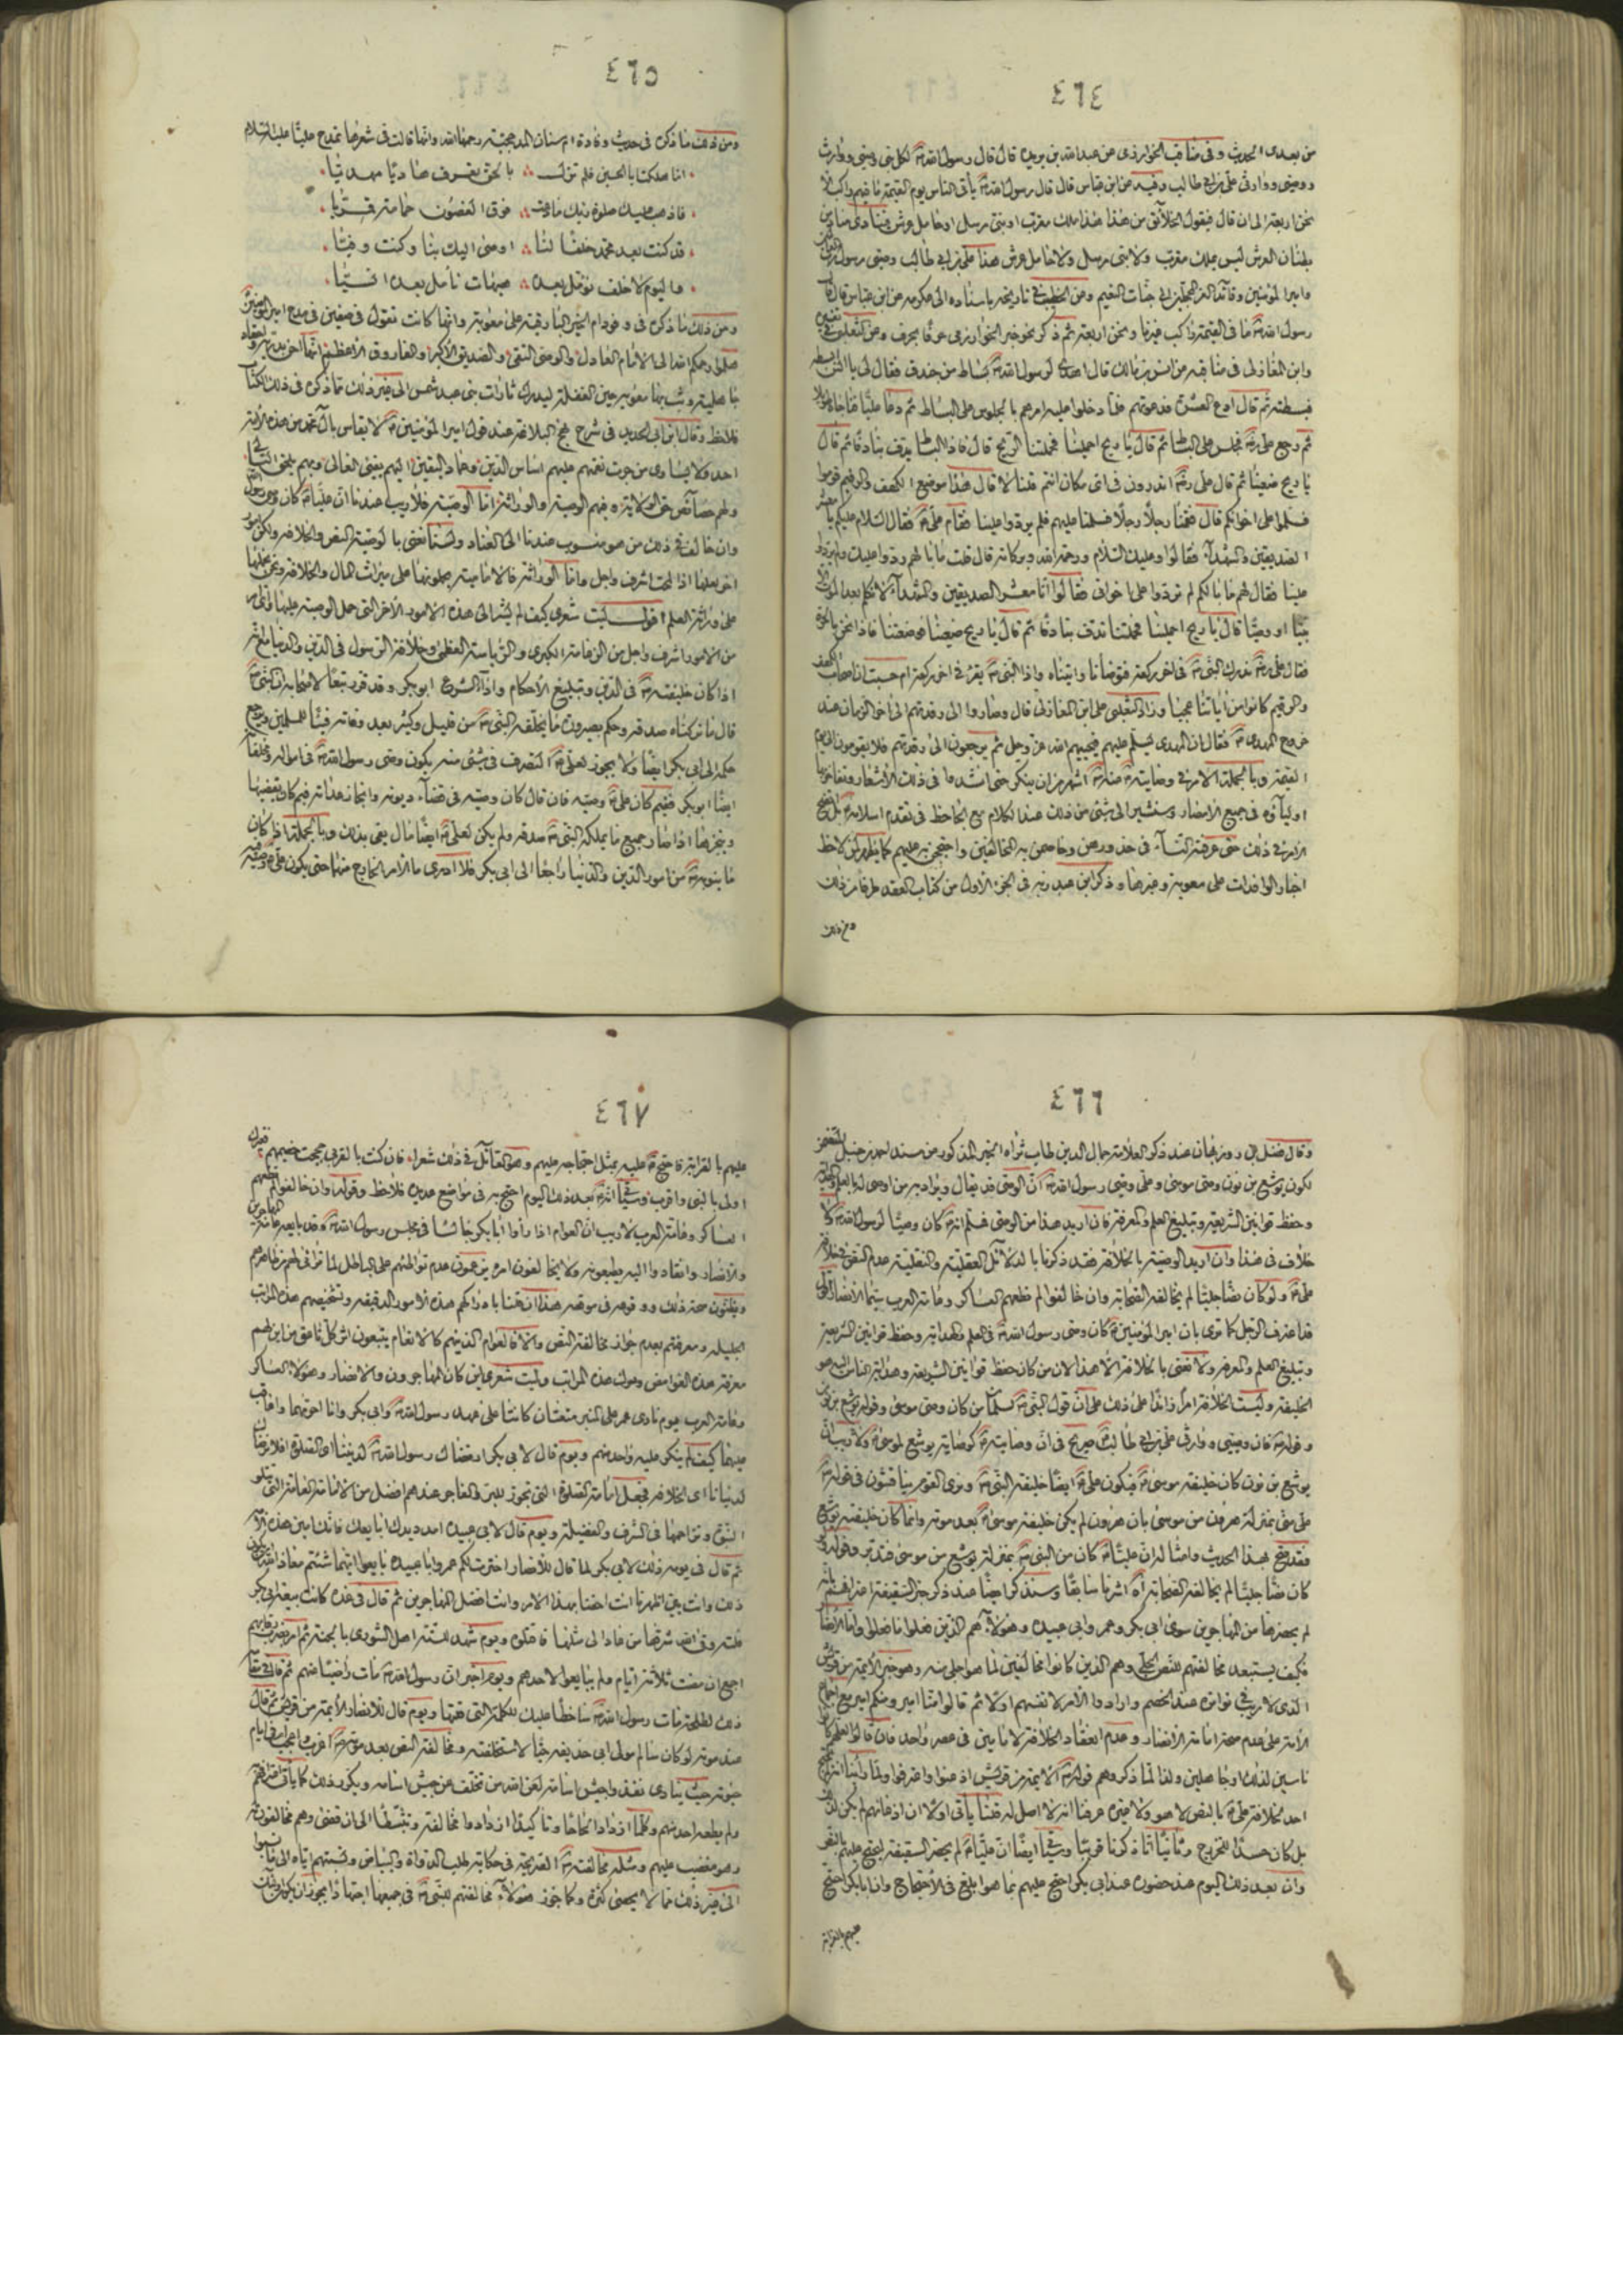 ٤٦٤
من بعدى الحديث وفى مناقب الخوارزمى عن عبد الله بن بريده قال قال رسول الله لكل نبى وصى ووارث
ووصيى ووارثى على بن ابى طالب وفيه عن ابن عباس قال قال رسول الله يأتى الناس يوم القيمة ما فيهم راكب الا
نحن اربعة الى ان قال فيقول الخلائق من هذا هذا ملك مقرب او نبى مرسل او حامل عرش فينادى مناد من
بطنان العرش ليس بملك مقرب ولا نبى مرسل ولا حامل عرش هذا على بن ابى طالب وصى رسول
وامير المؤمنين وقائد الغر المحجلين فى جنات النعيم ومن الخطيب فى تاريخه باسناده الى عكرمه عن ابن عباس قال قال
رسول الله ما فى القيمة راكب غيرنا ونحن اربعة ثم ذكر نحو خبر الخوارزمى حرفا بحرف وعن الثعلبى فى
وابن المغازلى فى مناقبه عن انس بن مالك قال اهدى لرسول الله بساط من خندف فقال لى يا انس
فبسطته ثم قال ادع العشرة فدعوتهم فلما دخلوا عليه امرهم بالجلوس على البساط ثم دعا عليا فناجاه
ثم رجع على فجلس على البساط ثم قال يا ريح احملينا فحملتنا الريح قال فاذا البساط يدف بنا دفا ثم قال
يا ريح ضعينا ثم قال على اتدرون فى اى مكان انتم قلنا لا قال هذا موضع الكهف والرقيم قوموا
فسلموا على اخوانكم قال فقمنا رجلا رجلا فسلمنا عليهم فلم يردوا علينا فقام على فقال السلام عليكم يا معشر
الصديقين والشهدآء فقالوا وعليك السلام ورحمة الله وبركاته قال قلت ما بالهم ردوا عليك ولم يردوا
علينا فقال لهم ما بالكم لم تردوا على اخوانى فقالوا انا معشر الصديقين والشهدآء لا نكلم بعد الموت
نبيا او وصيا قال يا ريح احملينا فحملتنا تدف بنا دفا ثم قال يا ريح ضعينا فوضعتنا فاذا نحن بالحرة
فقال على ندرك النبى فى اخر ركعة فتوضأنا واتيناه واذا النبى يقرء فى اخر ركعة ام حسبت ان اصحاب الكهف
والرقيم كانوا من آياتنا عجبا وزاد الثعلبى على ابن المغازلى قال وصاروا الى رقدتهم الى اخر الزمان عند
خروج المهدى فقال ان المهدى يسلم عليهم فيحييهم الله عز وجل ثم يرجعون الى رقدتهم فلا يقومون الى يوم
القيمة وبالجملة الامر فى وصايته اشهر من ان ينكر حتى
اوليآؤه فى جميع الاعصار وسنشير الى شئ من ذلك عند الكلام مع الجاحظ فى تقدم اسلامه بل
الامر فى ذلك حتى عرفته النسآء فى خدورهن وخاصمن به المخالفين واحتججن به عليهم كما يظهر لمن لاحظ
اخبار الوافدات على معوية وغيرها وذكر ابن عبد ربه فى الجزء الاول من كتاب العقد طرفا من ذلك
ومن ذلك
٤٦٥
ومن ذلك ما ذكره فى حديث وفادة ام سنان المذحجية رحمها الله وانها قالت فى شعرها تمدح عليا عليه السلام
اما هلكت ابا الحسين فلم تزل بالحق تعرف هاديا مهديا
فاذهب عليك صلوة ربك ما دعت فوق الغصون حمامة قمريا
قد كنت بعد محمد خلفا لنا اوصى اليك بنا وكنت وفيا
فاليوم لا خلف نؤمل بعده هيهات نأمل بعده انسيا
ومن ذلك ما ذكره فى وفود ام الخير البارقية على معوية وانها كانت تقول فى صفين فى مدح امير المؤمنين
هلموا رحمكم الله الى الامام العادل والوصى التقى والصديق الاكبر والفاروق الاعظم
جاهلية وثب بها معوية حين الغفلة ليدرك ثارات بنى عبد شمس الى غير ذلك مما ذكره فى ذلك الكتاب
فلاحظ وقال ابن ابى الحديد فى شرح نهج البلاغة عند قول امير المؤمنين لا يقاس بآل محمد من هذه الامة
احد ولا يساوى من جرت نعمتهم عليهم اساس الدين وعماد اليقين اليهم يفئ الغالى وبهم يلحق التالى
ولهم خصآئص حق الولاية وفيهم الوصية والوراثة اما الوصية فلا ريب عندنا ان عليا كان وصى رسول
وان خالف فى ذلك من هو منسوب عندنا الى العناد ولسنا نعنى بالوصية النص والخلافة ولكن امور
اخر لعلها اذا لمحت اشرف واجل واما الوراثة فالامامية يحملونها على ميراث المال والخلافة ونحن نحملها
على وراثة العلم اقول ليت شعرى كيف لم يشر الى هذه الامور الاخر التى حمل الوصية عليها
من الامور اشرف واجل من الزعامة الكبرى والرياسة العظمى وخلافة الرسول فى الدين والدنيا
اذا كان خليفته فى الدين وتبليغ الاحكام واداء الشرع ابو بكر وقد
قال ما تركناه صدقة وحكم بصيرورة ما يخلفه النبى من قليل وكثير بعد وفاته فيئا للمسلمين
حكمه الى ابى بكر ايضا ولا يجوز لعلى التصرف فى شئ منه يكون وصى رسول الله
ايضا ابو بكر ففيم كان على وصيه فان قال كان وصيه فى قضآء ديونه وانجاز عداته
وينجزها اذا صار جميع ما يملكه النبى صدقة ولم يكن لعلى ايضا مال يفى بذلك وبالجملة اذا كان
من امور الدين والدنيا راجعا الى ابى بكر فلا ادرى ما الامر الخارج منها حتى يكون على وصيه
٤٦٦
وقال فضل بن روزبهان عند ذكر العلامة جمال الدين طاب ثراه الخبر المذكور من مسند احمد بن حنبل
لكون يوشع بن نون وصى موسى وعلى وصى رسول الله ان الوصى قد يقال ويراد به من اوصى له بالعلم
وحفظ قوانين الشريعة وتبليغ العلم والمعرفة فان اريد هذا من الوصى فمسلم انه كان وصيا لرسول الله ولا
خلاف فى هذا وان اريد الوصية بالخلافة فقد ذكرنا بالدلائل العقلية والنقلية عدم النص فى خلافة
على ولو كان نصا جليا لم يخالفه الصحابة وان خالفوا لم تطعهم العساكر وعامة العرب سيما الانصار
قد اعترف الرجل كما ترى بان امير المؤمنين كان وصى رسول الله فى العلم والهداية وحفظ قوانين الشريعة
وتبليغ العلم والمعرفة ولا نعنى بالخلافة الا هذا لان من كان حفظ قوانين الشريعة وهداية الناس اليه هو
الخليفة وليست الخلافة امرا زائدا على ذلك على ان قول النبى
وقوله فان وصيى ووارثى على بن ابى طالب صريح فى ان وصايته كوصاية يوشع لموسى ولا ريب ان
يوشع بن نون كان خليفة موسى فيكون على ايضا خليفة النبى وترى القوم يناقشون فى قوله
على منى بمنزلة هرون من موسى بان هرون لم يكن خليفة موسى بعد موته وانما كان خليفته يوشع
فقد صح بهذا الحديث وامثاله ان عليا كان من النبى بمنزلة يوشع من موسى فتدبر وقوله لو
كان نصا جليا لم يخالفه الصحابة آه اشرنا سابقا وسنذكر ايضا عند ذكر خبر السقيفة
لم يحضرها من المهاجرين سوى ابى بكر وعمر وابى عبيده وهؤلآء هم الذين فعلوا ما فعلوا واما الانصار
فكيف يستبعد مخالفتهم للنص الجلى وهم الذين كانوا مخالفين لما هو اجلى منه وهو خبر الائمة من قريش
الذى لا ريب فى تواتره عند الخصم وارادوا الامر لانفسهم اولا ثم قالوا منا امير ومنكم امير مع اجماع
الامة على عدم صحة امامة الانصار وعدم انعقاد الخلافة لامامين فى عصر واحد فان قالوا لعلهم كانوا
ناسين لذلك او جاهلين ولذا لما ذكروهم قوله الائمة من قريش اذعنوا واعترفوا
احد لخلافة على بالنص لا هو ولا غيره عرفنا انه لا اصل له قلنا يأتى اولا ان اذعانهم لم يكن لذلك
بل كان حسدا للخزرج وثانيا ما ذكرنا قريبا وسيجئ ايضا ان عليا لم يحضر السقيفة ليحتج عليهم بالنص
وان بعد ذلك اليوم عند حضوره عند ابى بكر احتج عليهم بما هو ابلغ فى الاحتجاج وان ابا بكر احتج
عليهم بالقرابة
٤٦٧
عليهم بالقرابة فاحتج عليه بمثل احتجاجه عليهم وهو القائل فى ذلك شعرا فان كنت بالقربى حججت خصيمهم فغيرك
اولى بالنبى واقرب وسيجئ انه بعد ذلك اليوم احتج به فى مواضع عديده فلاحظ وقوله وان خالفوا لم تطعهم
العساكر وعامة العرب لا ريب ان العوام اذا رأوا ابا بكر جالسا فى مجلس رسول الله وقد بايعه
والانصار وانقادوا اليه يطيعونه ولا يخالفون امره
ويظنون صحة ذلك ووقوعه فى موقعه
الجليلة ومعرفتهم بعدم جواز مخالفة النص والا فالعوام الذين هم كالانعام يتبعون اثر كل ناعق من اين لهم
معرفة هذه الغوامض ودرك هذه المراتب وليت شعرى اين كان المهاجرون والانصار وهؤلاء العساكر
وعامة العرب يوم نادى عمر على المنبر متعتان كانتا على عهد رسول الله وابى بكر وانا احرمهما واعاقب
عليهما كيف لم ينكر عليه واحد منهم ويوم قال لابى بكر ارتضاك رسول الله لديننا اى الصلوة افلا نرضاك
لدنيانا اى الخلافة فجعل امامة الصلوة التى تجوز للبر والفاجر عندهم افضل من الامامة العامة التى تتلو
النبوة وتزاحمها فى الشرف والفضيلة ويوم قال لابى عبيده امدد يدك ابايعك فانك امين هذه الامة
ثم قال فى يومه ذلك لابى بكر لما قال للانصار اخترت لكم عمر وابا عبيده بايعوا ايهما شئتم معاذ الله ان يكون
ذلك وانت بين اظهرنا انت احقنا بهذا الامر وانت افضل المهاجرين ثم قال فى خده كانت بيعة ابى بكر
فلتة وقى الله شرها من عاد الى مثلها فاقتلوه ويوم شهد لستة اهل الشورى بالجنة ثم امر بضرب رقابهم
اجمع ان مضت ثلاثة ايام ولم يبايعوا لاحدهم ويوم اخبر ان رسول الله مات راضيا عنهم ثم قال فى
ذلك لطلحة مات رسول الله ساخطا عليك للكلمة التى قلتها ويوم قال للانصار الائمة من قريش ثم قال
عند موته لو كان سالم مولى ابى حذيفة حيا لاستخلفته ومخالفة النص بعد موته
حيوته حيث ينادى نفذوا جيش اسامة لعن الله من تخلف عن جيش اسامه ويكرر ذلك كما يأتى
ولم يطعه احد منهم وكلما ازداد الحاحا وتأكيدا ازدادوا مخالفة وتثبطا الى ان قضى وهم مخالفون له
وهو مغضب عليهم ومثله مخالفته الصريحة فى حكاية طلب الدواة والبياض ونسبتهم اياه الى ما نسبوا
الى غير ذلك مما لا يحصى كثرة وكما جوز هؤلآء مخالفتهم للنبى فى جميعها اجتهادا